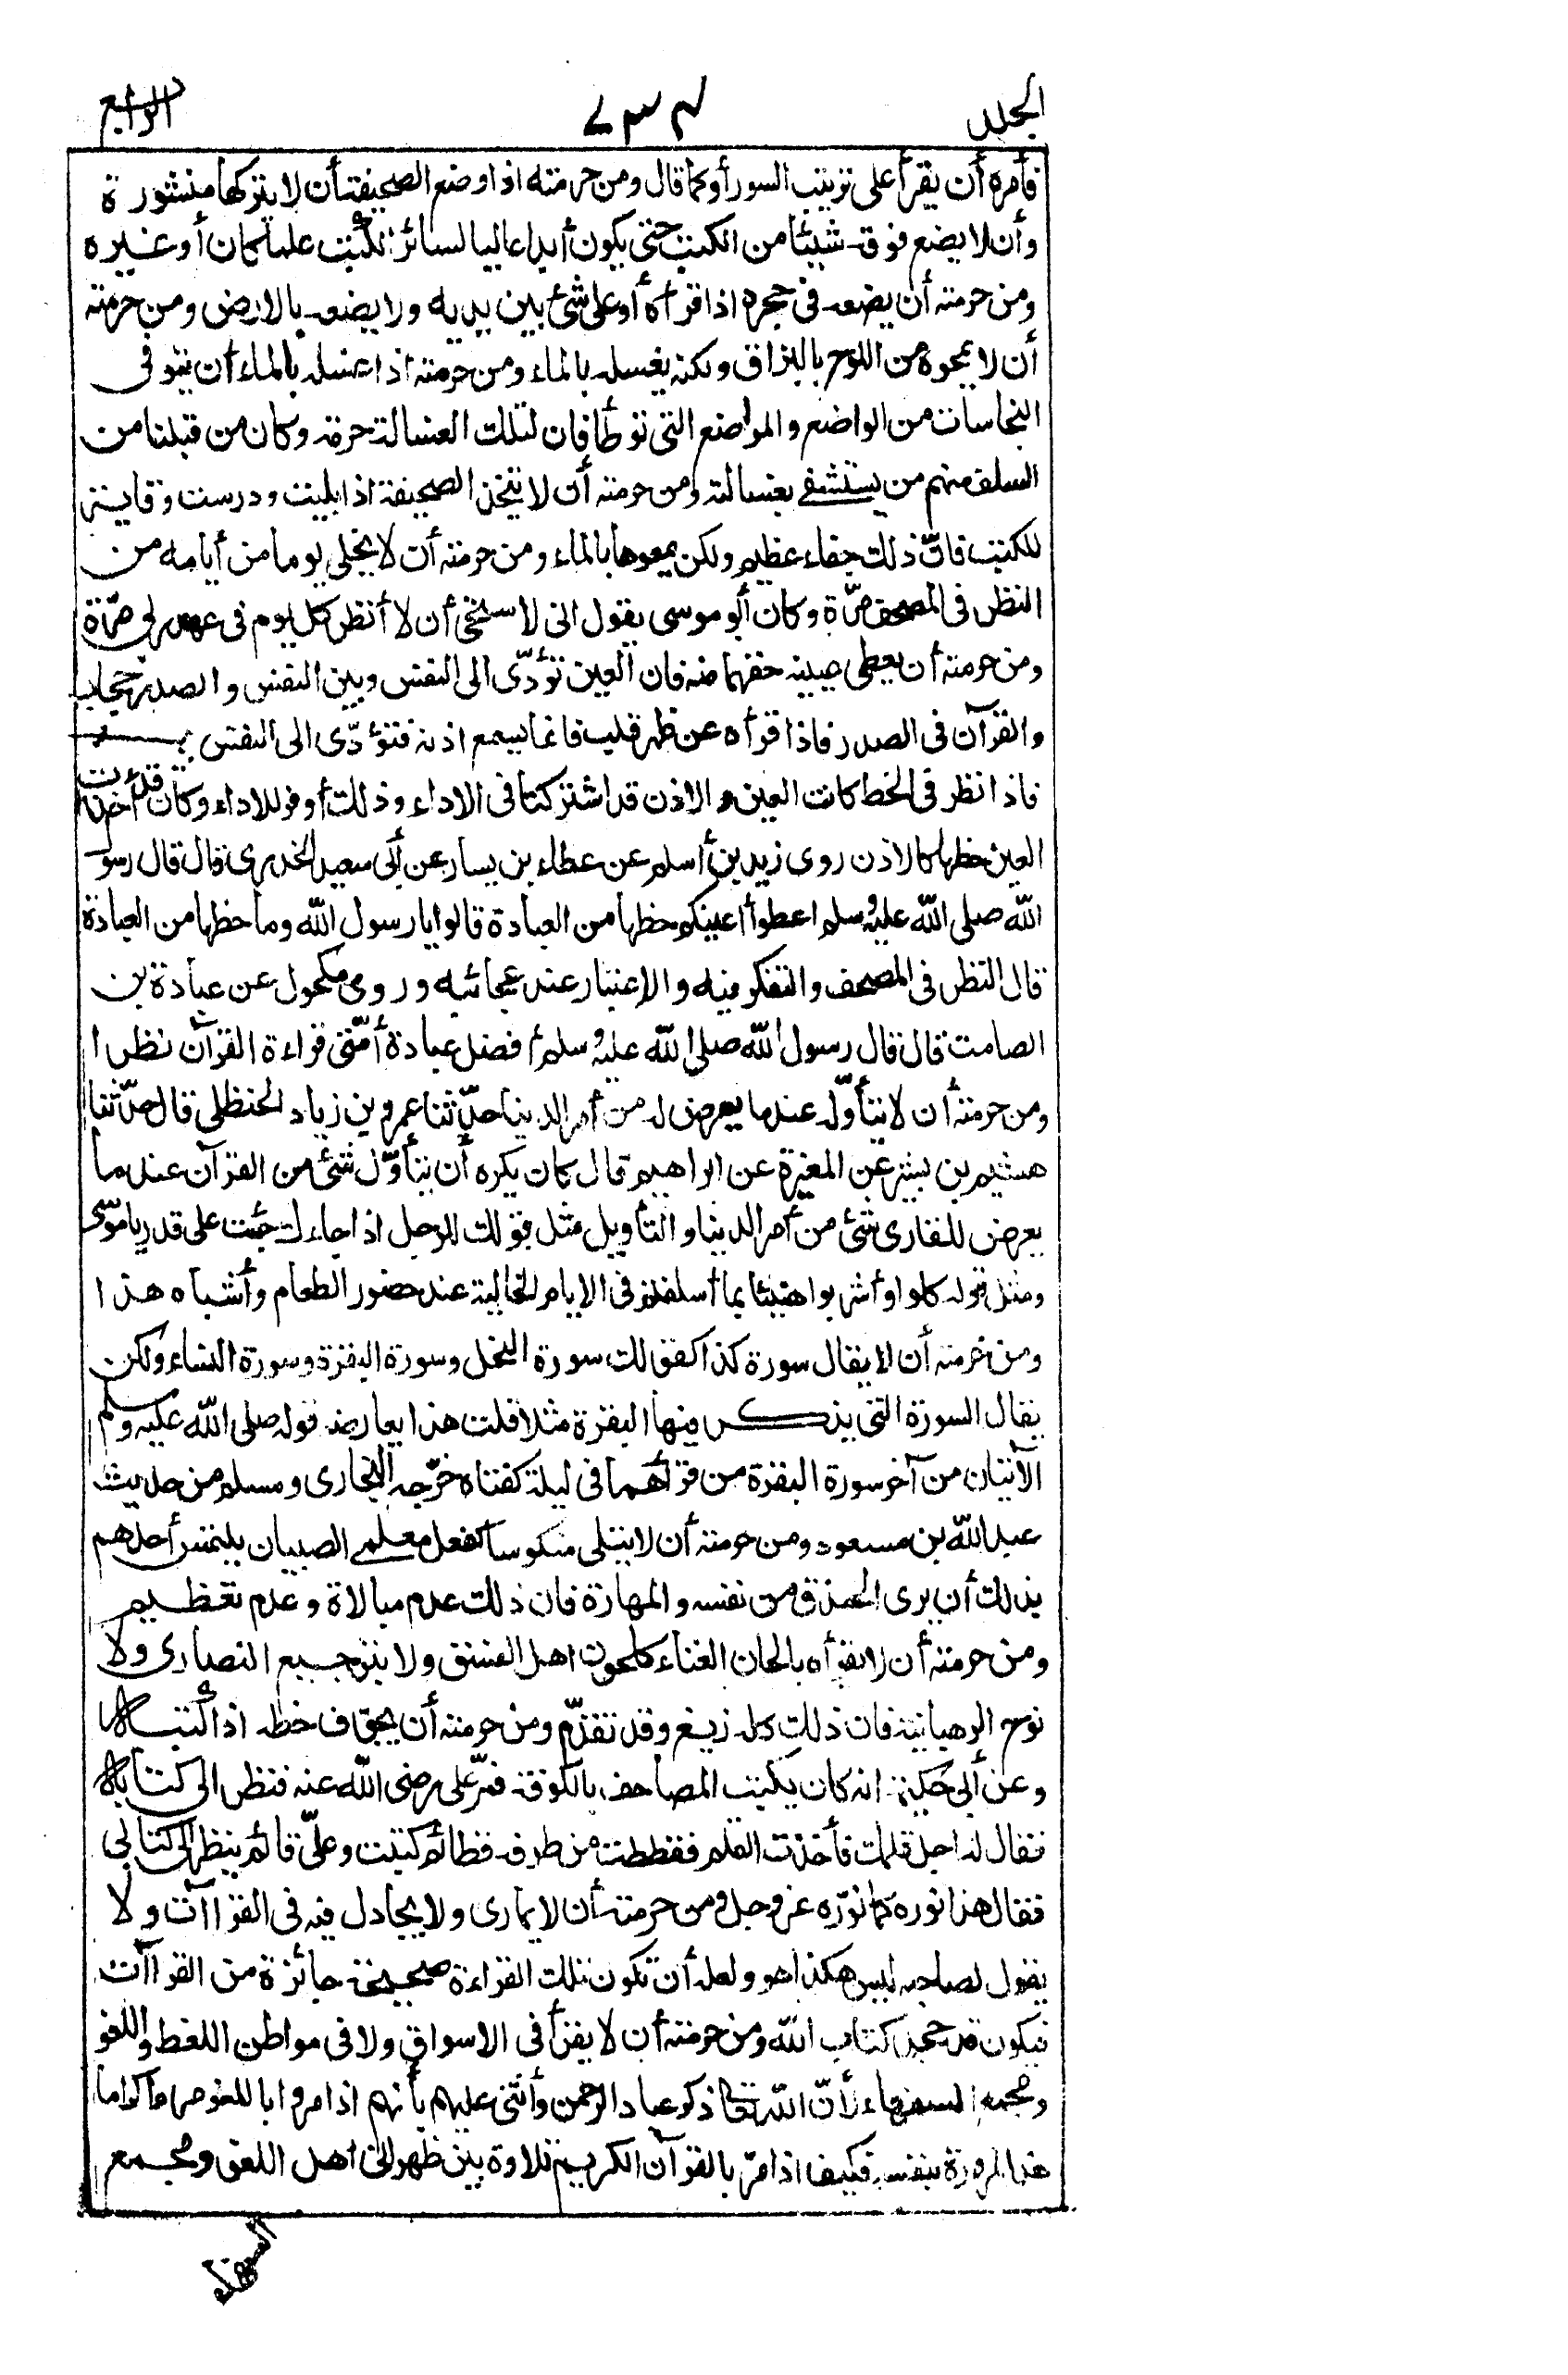 المجلد ٧٣٤ الرابع
فأمره أن يقرأ على ترتيب السور أو كما قال ومن حرمته اذا وضع الصحيفة أن لا يتركها منشورة
وأن لا يضع فوقه شيئا من الكتب حتى يكون أبدا عاليا لسائر الكتب علما كان أو غيره
ومن حرمته أن يضعه فى حجره اذا قرأه أو على شئ بين يديه ولا يضعه بالارض ومن حرمته
أن لا يمحوه من اللوح بالبزاق ولكنه يغسله بالماء ومن حرمته اذا غسله بالماء أن يتوقى
النجاسات من الواضع والمواضع التى توطأ فان لتلك الغسالة حرمة وكان من قبلنا من
السلف منهم من يستشفي بغسالته ومن حرمته أن لا يتخذ الصحيفة اذا بليت ودرست وقاية
للكتب فانّ ذلك جفاء عظيم ولكن يمحوها بالماء ومن حرمته أن لا يخلى يوما من أيامه من
النظر فى المصحف مرّة وكان أبو موسى يقول انى لاستحيى أن لا أنظر كل يوم فى عهد ربى مرّة
ومن حرمته أن يعطى عينيه حقهما منه فان العين تؤدّى الى النفس وبين النفس والصدر حجاب
والقرآن فى الصدر فاذا قرأه عن ظهر قلب فانما يسمع اذنه فتؤدّى الى النفس
فاذا نظر فى الخط كانت العين والاذن قد اشتركتا فى الاداء وذلك أوفر للاداء وكان قد أخذت
العين حظها كالاذن روى زيد بن أسلم عن عطاء بن يسار عن أبى سعيد الخدرى قال قال رسول
الله صلى الله عليه وسلم اعطوا أعينكم حظها من العبادة قالوا يا رسول الله وما حظها من العبادة
قال النظر فى المصحف والتفكر فيه والاعتبار عند عجائبه وروى مكحول عن عبادة بن
الصامت قال قال رسول الله صلى الله عليه وسلم أفضل عبادة أمّتى قراءة القرآن نظرا
ومن حرمته أن لا يتأوّله عندما يعرض له من أمر الدنيا حدّثنا عمرو بن زياد الحنظلى قال حدّثنا
هشيم بن بشير عن المغيرة عن ابراهيم قال كان يكره أن يتأوّل شئ من القرآن عند ما
يعرض للقارى شئ من أمر الدنيا والتأويل مثل قولك للرجل اذا جاءك جئت على قدر يا موسى
ومثل قوله كلوا واشربوا هنيئا بما أسلفتم فى الايام الخالية عند حضور الطعام وأشباه هذا
ومن حرمته أن لا يقال سورة كذا كقولك سورة النحل وسورة البقرة وسورة النساء ولكن
يقال السورة التى يذكر فيها البقرة مثلا قلت هذا يعارضه قوله صلى الله عليه وسلم
الآيتان من آخر سورة البقرة من قرأهما فى ليلة كفتاه خرّجه البخارى ومسلم من حديث
عبد الله بن مسعود ومن حرمته أن لا يتلى منكوسا كفعل معلمي الصبيان يلتمس أحدهم
بذلك أن يرى الحذق من نفسه والمهارة فان ذلك عدم مبالاة وعدم تعظيم
ومن حرمته أن لا يقرأه بالحان الغناء كلحون اهل الفسق ولا بترجيع النصارى ولا
نوح الرهبانية فان ذلك كله زيغ وقد تقدّم ومن حرمته أن يحقق خطه اذا كتبه
وعن أبى حكيمة انه كان يكتب المصاحف بالكوفة فمرّ على رضى الله عنه فنظر الى كتابه
فقال له اجل قلمك فأخذت القلم فقططت من طرفه قطا ثم كتبت وعلىّ قائم ينظر الى كتابى
فقال هذا نوره كما نوّره عز وجل ومن حرمته أن لا يمارى ولا يجادل فيه فى القراآت ولا
يقول لصاحبه ليس هكذا هو ولعله أن تكون تلك القراءة صحيحة جائزة من القراآت
فيكون قد جحد كتاب الله ومن حرمته أن لا يقرأ فى الاسواق ولا فى مواطن اللغط واللغو
ومجمع السفهاء لأنّ الله تعالى ذكر عباد الرحمن وأثنى عليهم بأنهم اذا مروا باللغو مروا كراما
هذا لمروره بنفسه فكيف اذا مرّ بالقرآن الكريم تلاوة بين ظهرانى أهل اللغو ومجمع
السفهاء